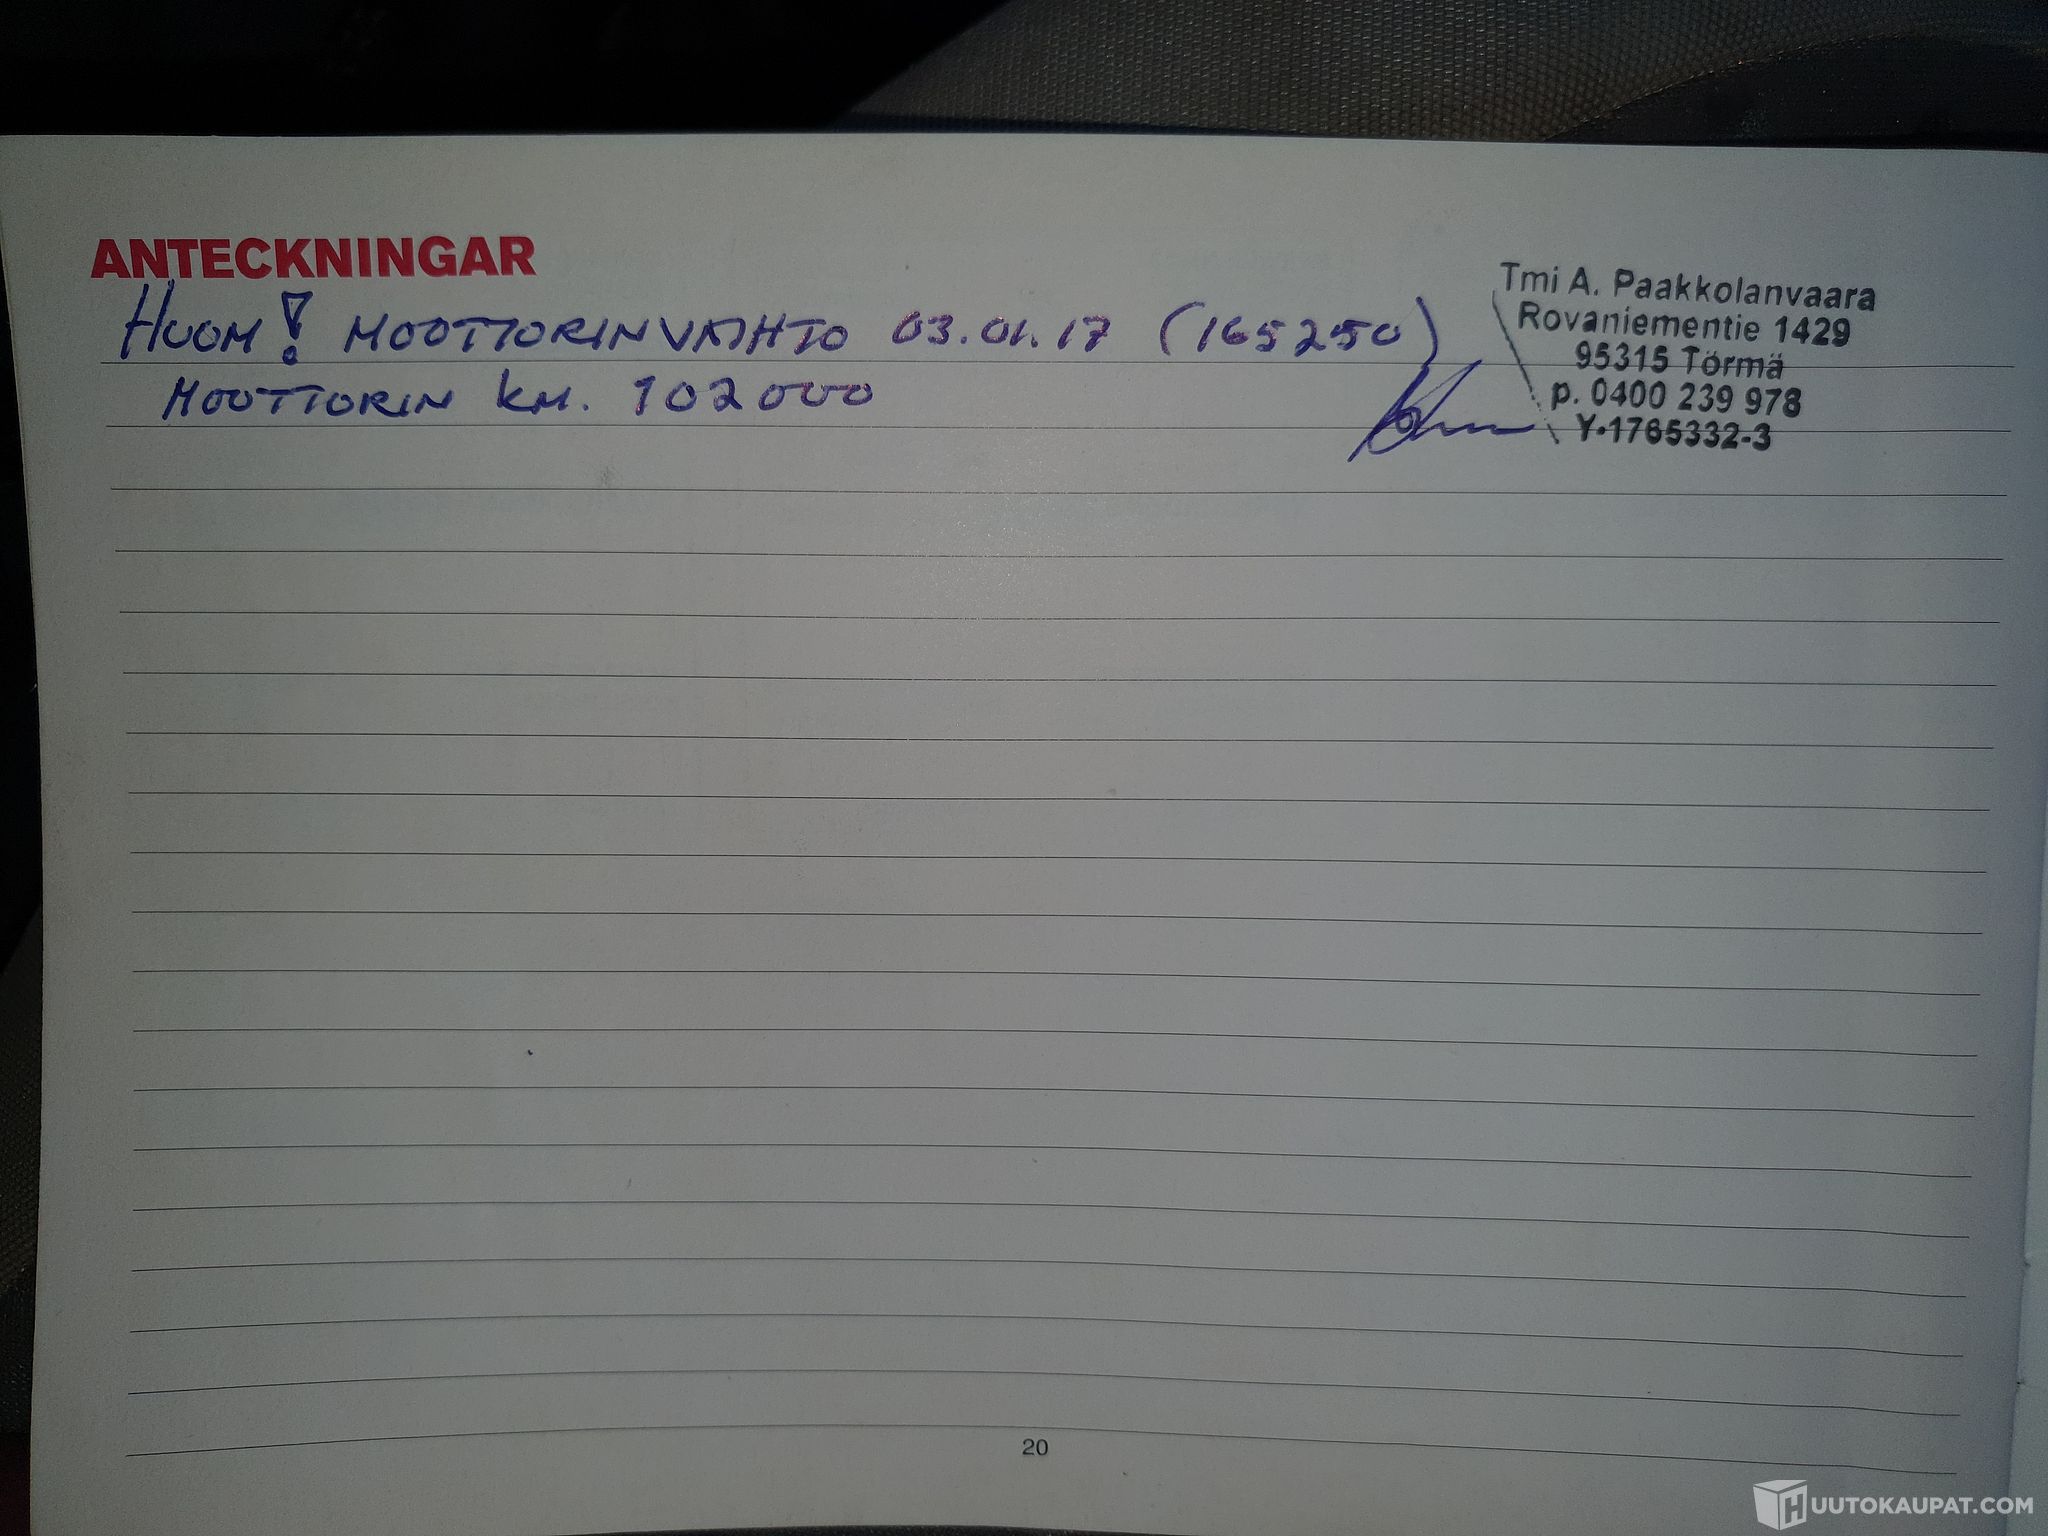 ANTECKNINGAR
HUOM! MOOTTORINVAIHTO 03.01.17 (165250)
MOOTTORIN km. 102000
Tmi A. Paakkolanvaara
Rovaniementie 1429
95315 Törmä
p. 0400 239 978
Y-1765332-3
20
HUUTOKAUPAT.COM